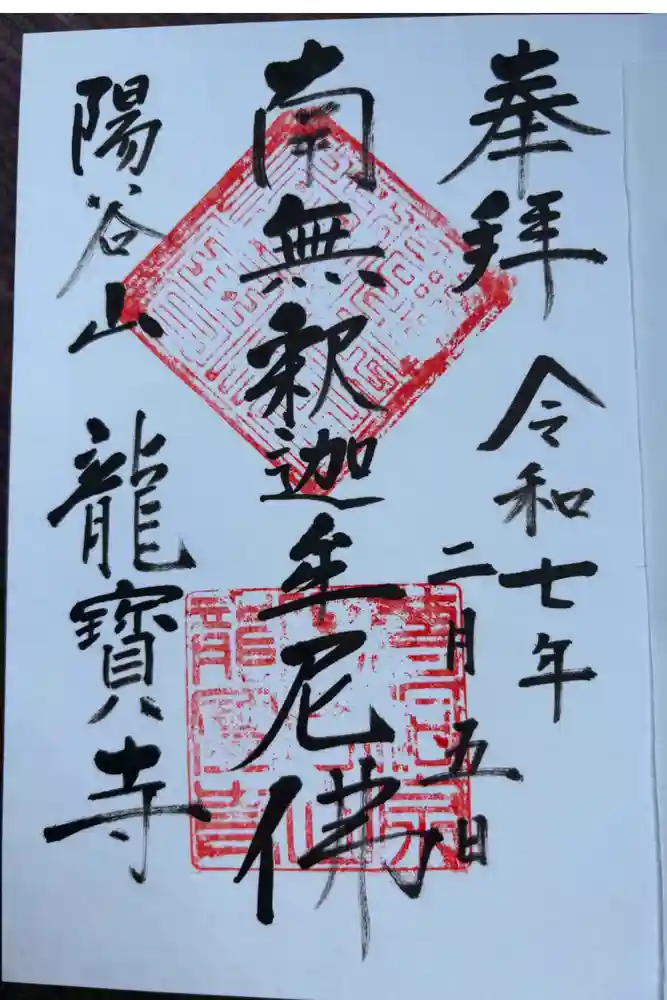 奉拜
令和七年
二月五日
南無釈迦牟尼佛
陽谷山
龍寳寺